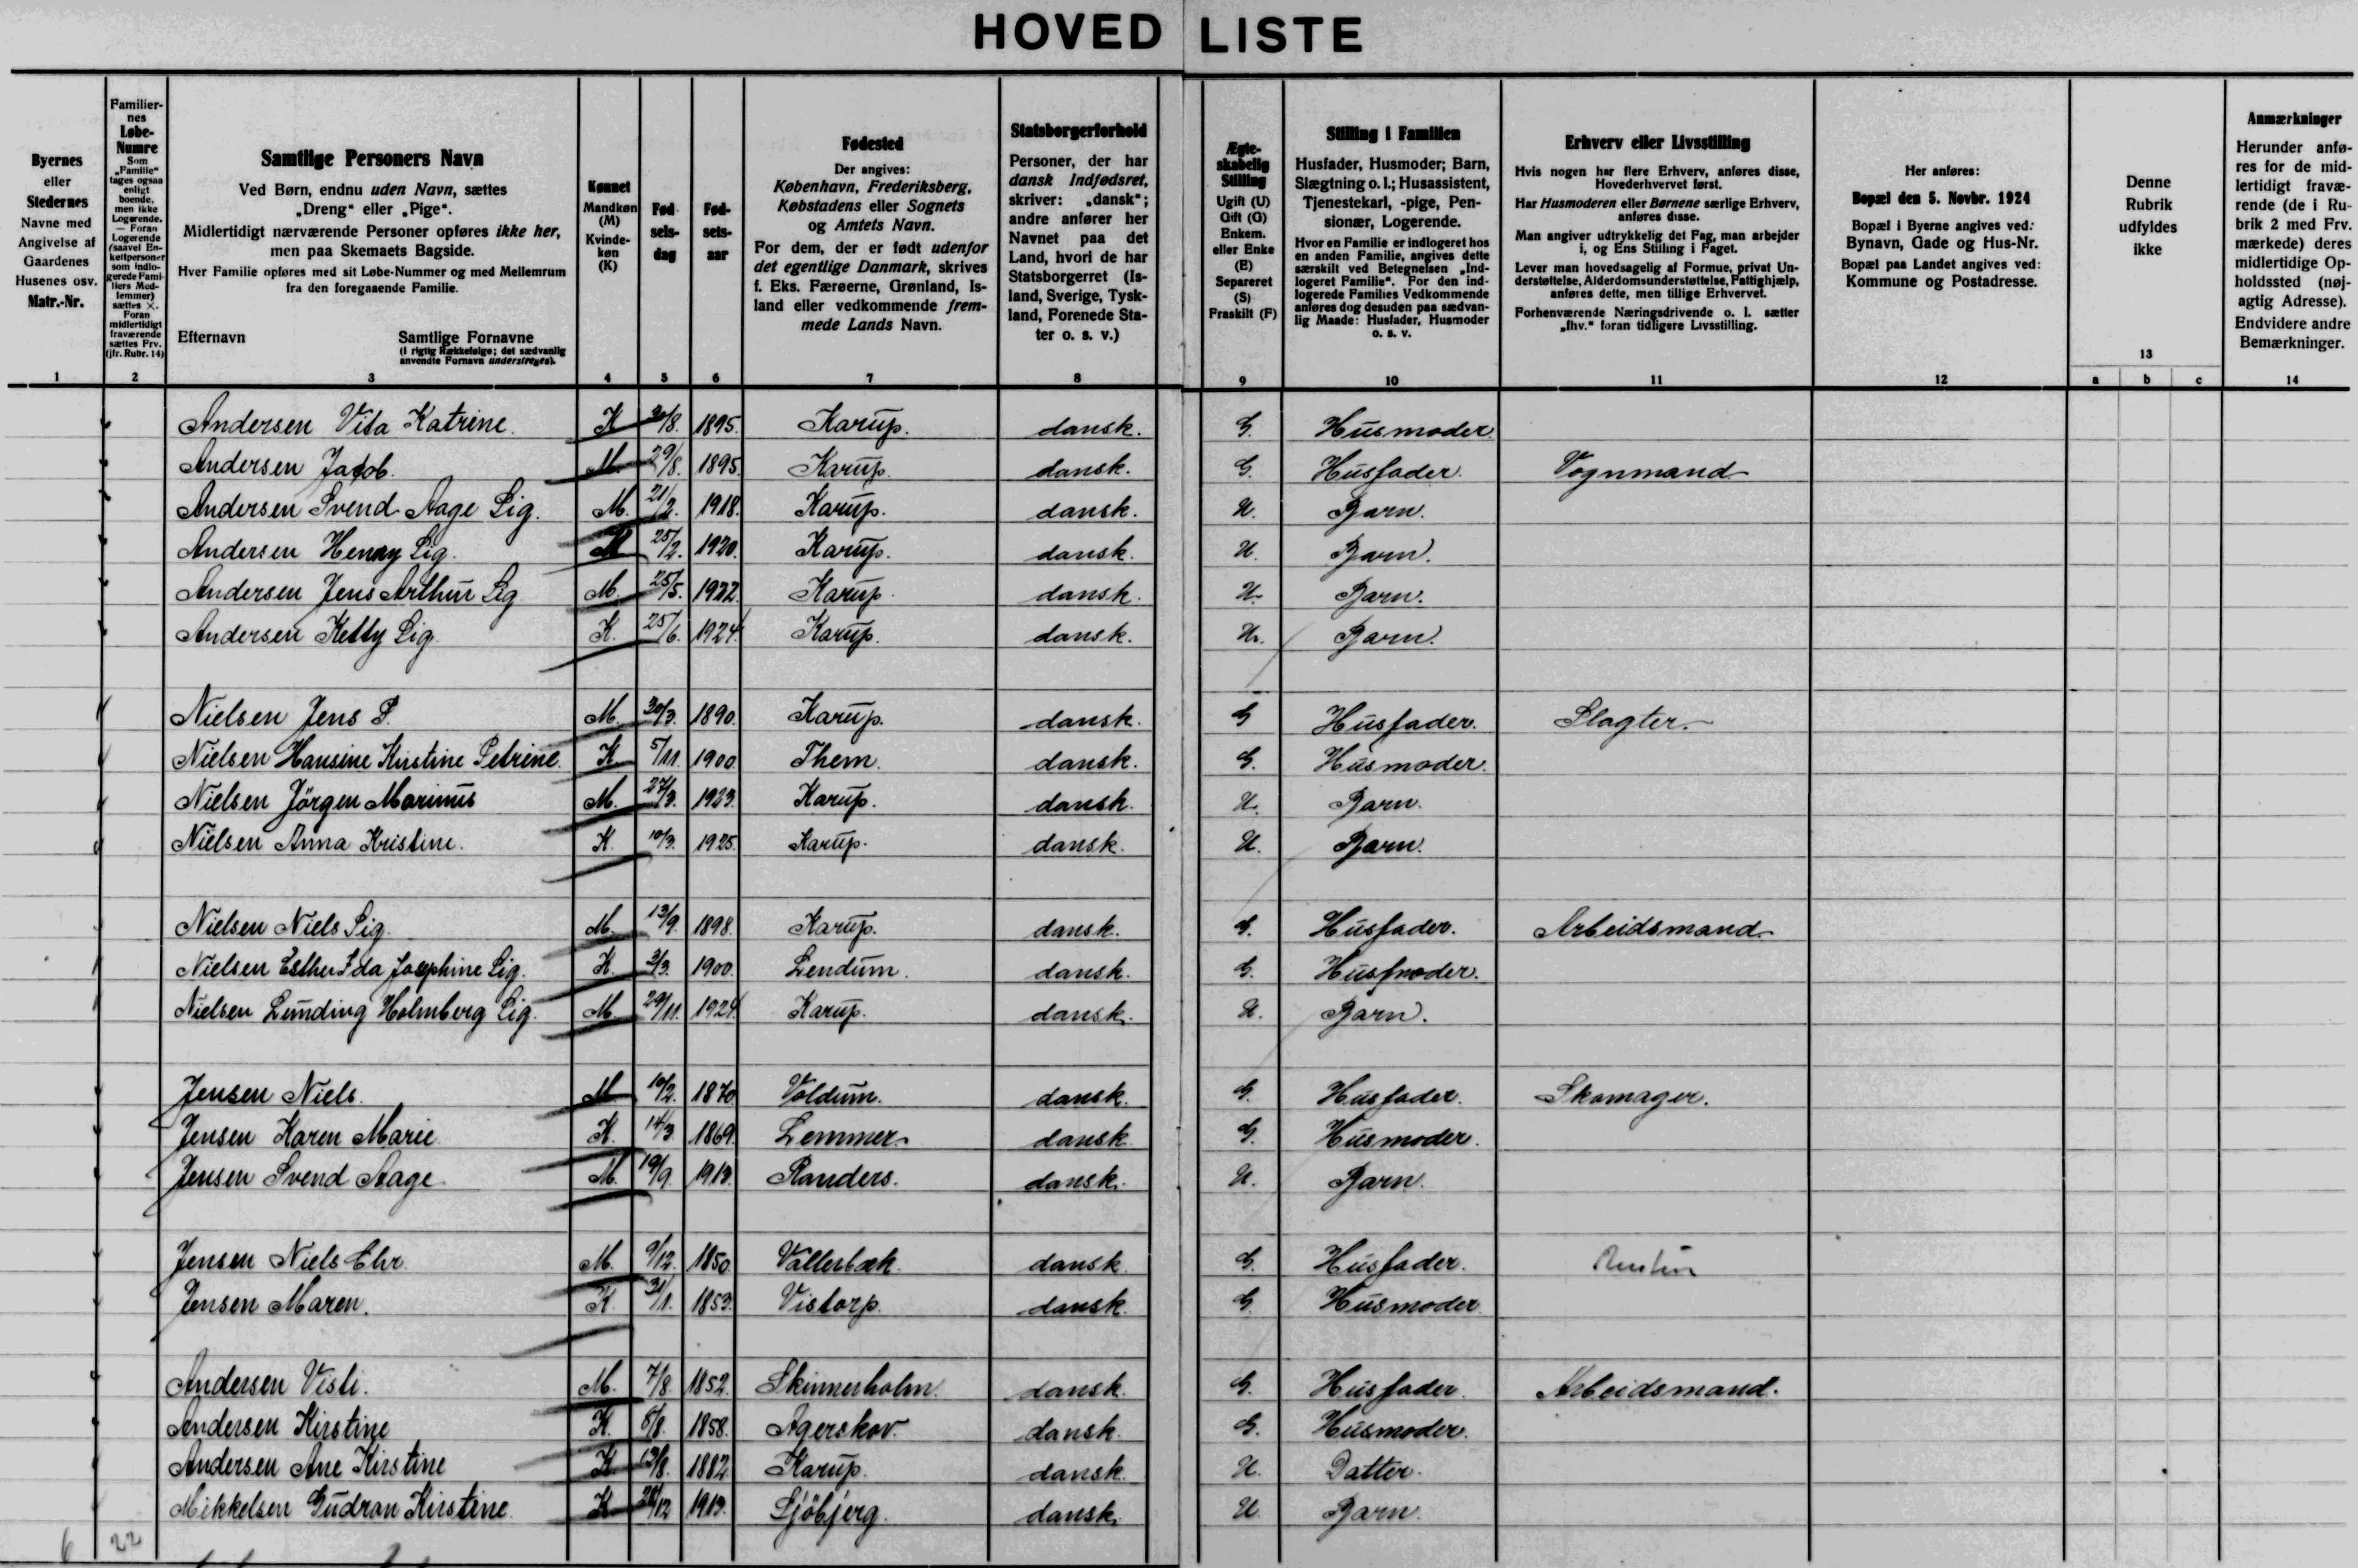 HOVED LISTE
Byernes
eller
Stedernes
Navne med
Angivelse af
Gaardenes
Husenes osv.
Matr.-Nr.
1
Familier-
nes
Løbe-
Numre
Som
„Familie“
tages ogsaa
enligt
boende,
men ikke
Logerende.
— Foran
Logerende
(saavel En-
keltpersoner
som indlo-
gerede Fami-
liers Med-
lemmer)
sættes ×.
Foran
midlertidigt
fraværende
sættes Frv.
(jfr. Rubr. 14)
2
Samtlige Personers Navn
Ved Børn, endnu uden Navn, sættes
„Dreng“ eller „Pige“.
Midlertidigt nærværende Personer opføres ikke her,
men paa Skemaets Bagside.
Hver Familie opføres med sit Løbe-Nummer og med Mellemrum
fra den foregaaende Familie.
Efternavn Samtlige Fornavne
(i rigtig Rækkefølge; det sædvanlig
anvendte Fornavn understreges).
3
Kønnet
Mandkøn
(M)
Kvinde-
køn
(K)
4
Fød
sels-
dag
5
Fød-
sels-
aar
6
Fødested
Der angives:
København, Frederiksberg,
Købstadens eller Sognets
og Amtets Navn.
For dem, der er født udenfor
det egentlige Danmark, skrives
f. Eks. Færøerne, Grønland, Is-
land eller vedkommende frem-
mede Lands Navn.
7
Statsborgerforhold
Personer, der har
dansk Indfødsret,
skriver: „dansk“;
andre anfører her
Navnet paa det
Land, hvori de har
Statsborgerret (Is-
land, Sverige, Tysk-
land, Forenede Sta-
ter o. s. v.)
8
Ægte-
skabelig
Stilling
Ugift (U)
Gift (G)
Enkem.
eller Enke
(E)
Separeret
(S)
Fraskilt (F)
9
Stilling i Familien
Husfader, Husmoder; Barn,
Slægtning o. l.; Husassistent,
Tjenestekarl, -pige, Pen-
sionær, Logerende.
Hvor en Familie er indlogeret hos
en anden Familie, angives dette
særskilt ved Betegnelsen „Ind-
logeret Familie“. For den ind-
logerede Families Vedkommende
anføres dog desuden paa sædvan-
lig Maade: Husfader, Husmoder
o. s. v.
10
Erhverv eller Livsstilling
Hvis nogen har flere Erhverv, anføres disse,
Hovederhvervet først.
Har Husmoderen eller Børnene særlige Erhverv,
anføres disse.
Man angiver udtrykkelig det Fag, man arbejder
i, og Ens Stilling i Faget.
Lever man hovedsagelig af Formue, privat Un-
derstøttelse, Alderdomsunderstøttelse, Fattighjælp,
anføres dette, men tillige Erhvervet.
Forhenværende Næringsdrivende o. l. sætter
„fhv.“ foran tidligere Livsstilling.
11
Her anføres:
Bopæl den 5. Novbr. 1924
Bopæl i Byerne angives ved:
Bynavn, Gade og Hus-Nr.
Bopæl paa Landet angives ved:
Kommune og Postadresse.
12
Denne
Rubrik
udfyldes
ikke
13
a b c
Anmærkninger
Herunder anfø-
res for de mid-
lertidigt fravæ-
rende (de i Ru-
brik 2 med Frv.
mærkede) deres
midlertidige Op-
holdssted (nøj-
agtig Adresse).
Endvidere andre
Bemærkninger.
14
Andersen Vita Katrine. K 30/8. 1895. Karup. dansk. G. Husmoder.
Andersen Jacob. M 29/8. 1895. Karup. dansk. G. Husfader. Vognmand
Andersen Svend Aage Sig. M. 21/2. 1918. Karup. dansk. U. Barn.
Andersen Henry Sig. M 25/2. 1920. Karup. dansk. U. Barn.
Andersen Jens Arthur Sig M. 25/5. 1922. Karup. dansk. U. Barn.
Andersen Ketty Sig. K. 25/6. 1924. Karup. dansk. U. Barn.
Nielsen Jens P. M. 30/3. 1890. Karup. dansk. G Husfader. Slagter.
Nielsen Hansine Kirstine Petrine. K 5/11. 1900. Them. dansk. G. Husmoder.
Nielsen Jörgen Marinus M. 27/3. 1923. Karup. dansk. U. Barn.
Nielsen Anna Kristine. K. 10/3. 1925. Karup. dansk. U. Barn.
Nielsen Niels Sig. M. 13/9. 1898. Karup. dansk. G. Husfader. Arbeidsmand
Nielsen Esther Ida Josephine Sig. K. 2/3. 1900. Lendum. dansk. G. Husmoder.
Nielsen Lunding Holmberg Sig. M. 29/11. 1924. Karup. dansk. U. Barn.
Jensen Niels. M 10/2. 1870. Voldum. dansk. G. Husfader. Skomager.
Jensen Karen Marie K. 14/3 1869. Lemmer. dansk G. Husmoder.
Jensen Svend Aage M. 19/9. 1913. Randers. dansk. U. Barn.
Jensen Niels Chr. M. 9/12. 1850. Vallerbæk. dansk. G. Husfader.
Jensen Maren. K. 31/1. 1853. Vistorp. dansk. G. Husmoder
Andersen Visti. M. 7/8. 1852. Skinnerholm. dansk. G. Husfader. Arbeidsmand.
Andersen Kirstine K. 5/8. 1858. Agerskov. dansk. G. Husmoder.
Andersen Ane Kirstine K. 13/8. 1882. Karup. dansk. U. Datter.
Mikkelsen Gudran Kirstine K 1913. Sjöbjerg. dansk. U Barn.
6 22